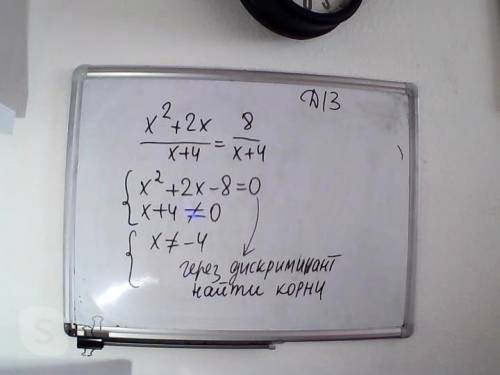 Д/З
x²+2x / x+4 = 8 / x+4
{ x²+2x-8=0
x+4≠0
{ x≠-4
через дискриминант
найти корни